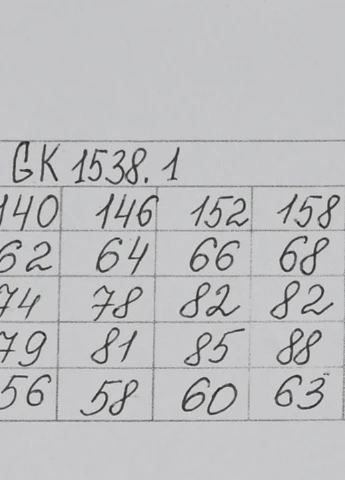 GK 1538.1
140 146 152 158
62 64 66 68
74 78 82 82
79 81 85 88
56 58 60 63